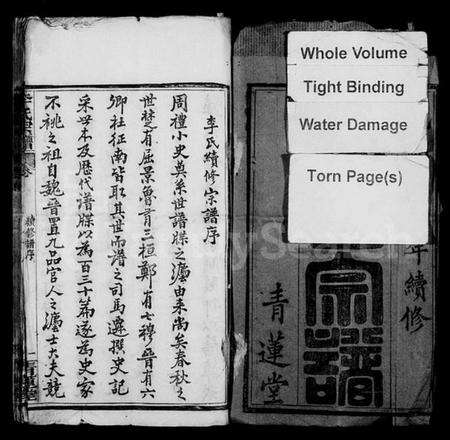 李氏續修宗譜序
周禮小史奠系世譜牒之濫由來尚矣春秋之
世楚有屈景魯有三桓鄭有七穆晉有六
卿社征南皆取其世而譜之司馬遷撰史記
采世本及歷代譜牒以為百三十篇遂為史家
不祧之祖自魏晉置九品官人之濫士大夫競
續修譜序
Whole Volume
Tight Binding
Water Damage
Torn Page(s)
年續修
宗譜
青蓮堂